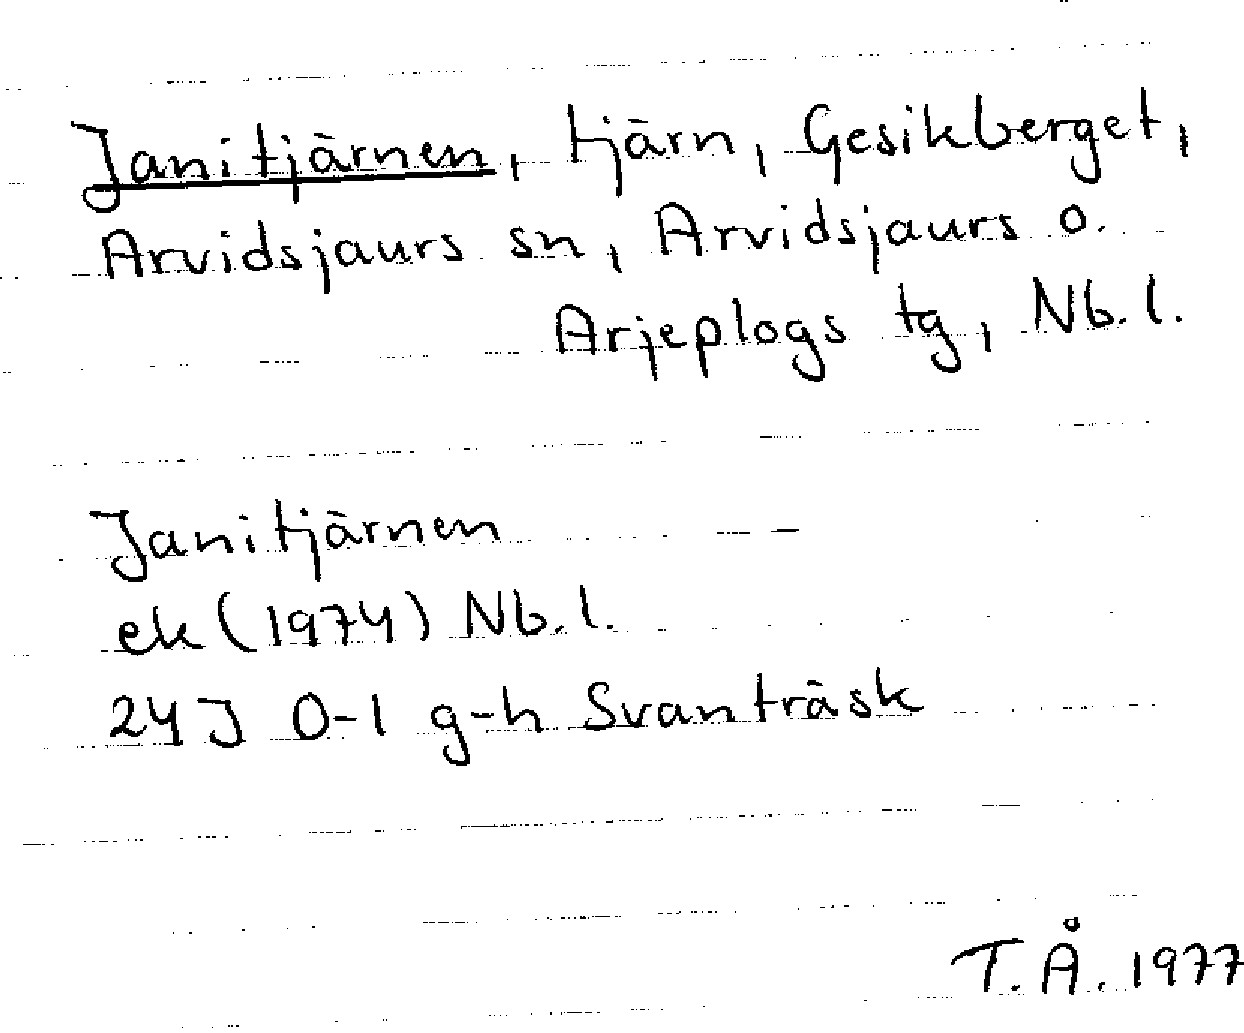 Janitjärnen, tjärn, Gesikberget,
Arvidsjaurs sn, Arvidsjaurs o.
Arjeplogs tg, Nb. l.
Janitjärnen
ek (1974) Nb. l.
24J 0-1 g-h Svanträsk
T. Å. 1977